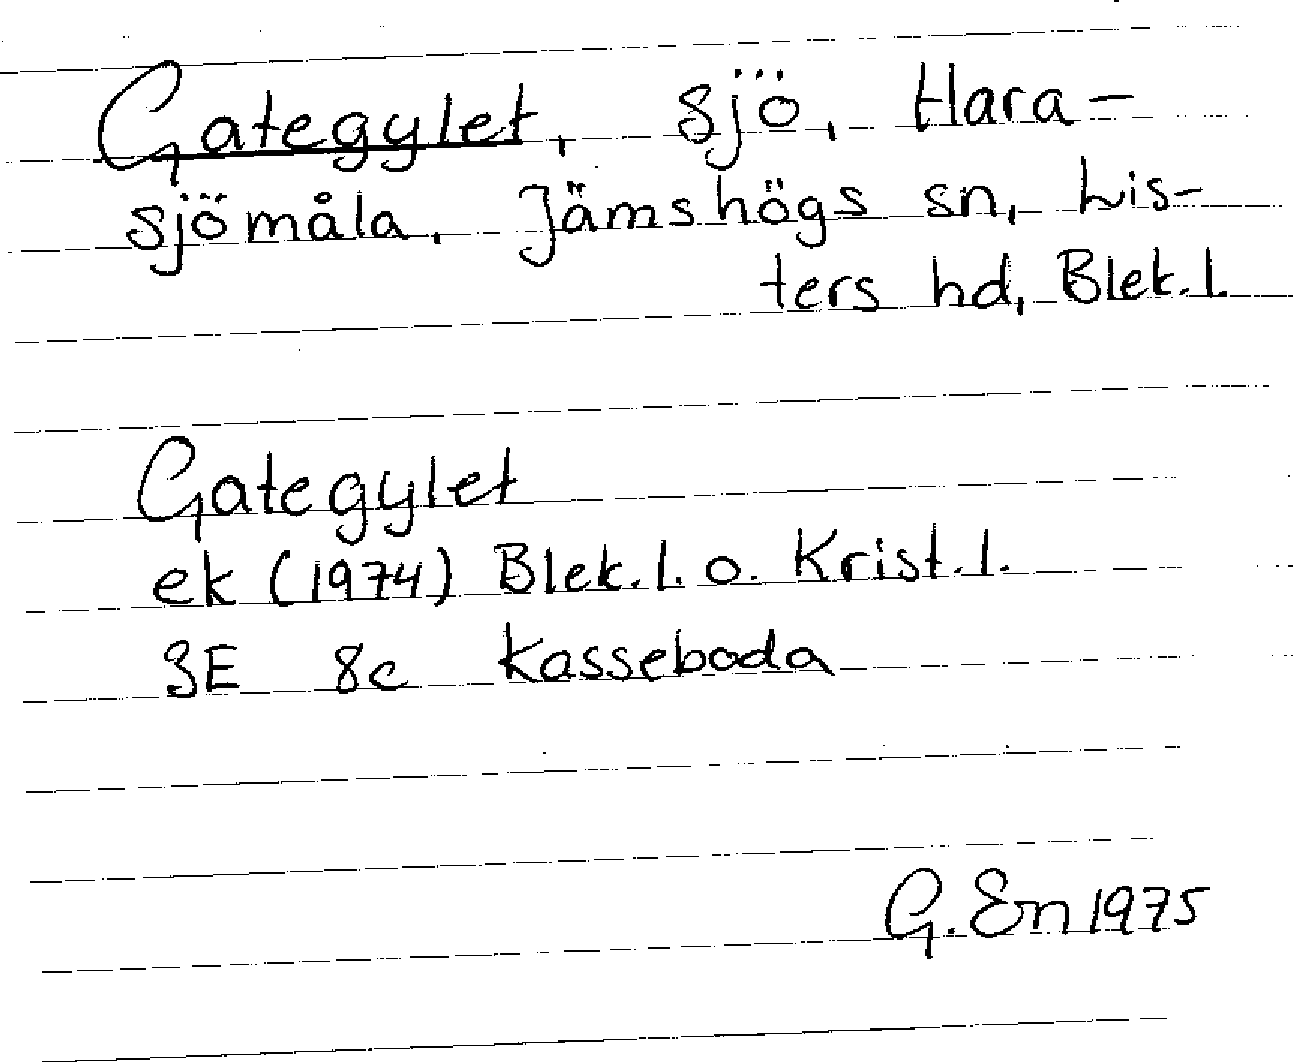 Gategylet, sjö, Hara-
sjömåla, Jämshögs sn, Lis-
ters hd, Blek.l.
Gategylet
ek (1974) Blek.l. o. Krist.l.
3E 8c Kasseboda
G. En 1975